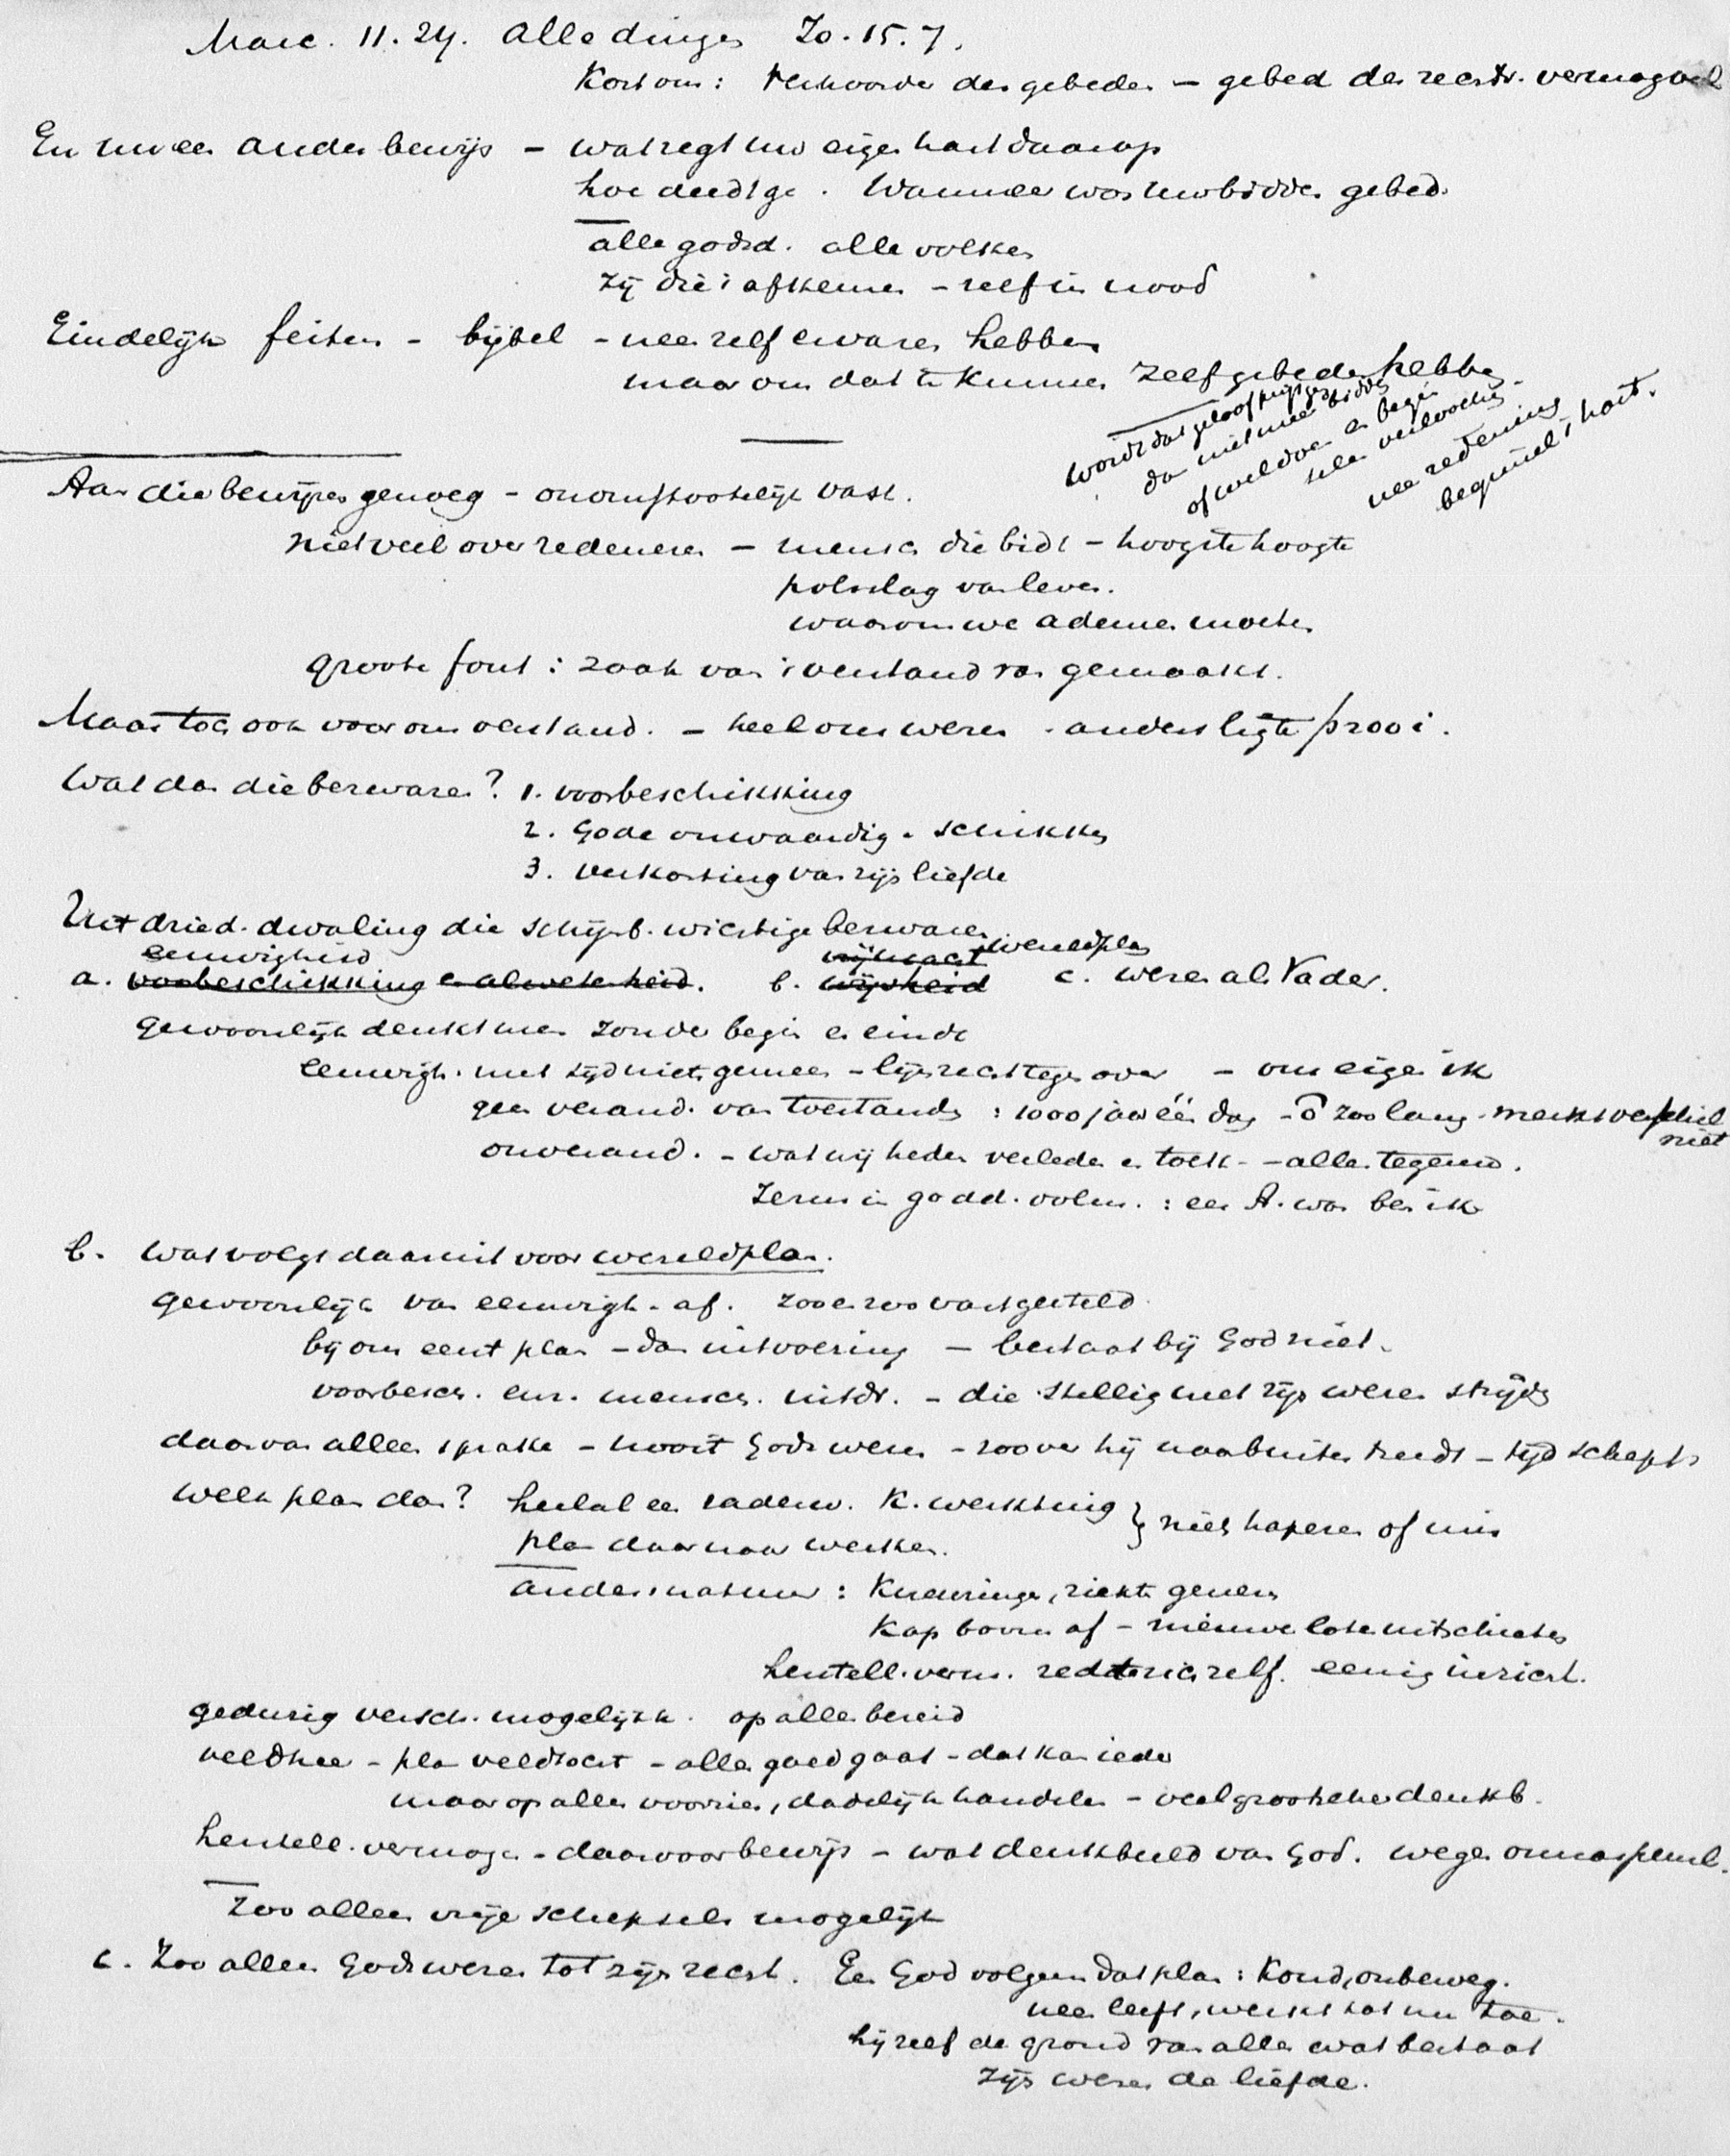 Marc. 11.24. Alle dingen Jo. 15.7.
Kortom: Verhoorder der gebeden – gebed des rechtv. vermag veel
En nu een ander bewijs – wat zegt uw eigen hart daarop
hoe deedt ge. Wanneer was uw bidden gebed.
alle godsd. alle volken
zij die 't afkeuren – zelf in nood
Eindelijk feiten – bijbel – nee zelf ervaren hebben
maar om dat te kunnen zelf gebeden hebben
wordt dat geloof prijsgeg.
dan niet meer bidden
of wel doen en begin
nee redeneering
begint in 't hart.
Aan die bewijzen genoeg – onomstootelijk vast.
niet veel over redeneren – mensch die bidt – hoogste hoogte
polsslag van leven.
waarom we ademen moeten
groote fout: zaak van 't verstand van gemaakt.
Maar toch ook voor ons verstand. – heel ons wezen – anders ligte prooi.
Wat dan die bezwaren? 1. voorbeschikking
2. Gode onwaardig – schikken
3. verkorting van zijn liefde
Uit dried. dwaling die schijnb. wichtige bezwaren
eeuwigheid wereldplan
a. voorbeschikking en alwetenheid. b. wijsheid c. wezen als Vader.
Gewoonlijk denkt men zonder begin en einde
Eeuwigh. met tijd niets gemeen – lijnrecht tegenover – ons eigen ik
geen verand. van toestanden: 1000 jaar één dag – ô zoo lang – merkt verschil niet
onverand. – wat wij heden verleden en toek. – alles tegenw.
Jezus in godd. volm.: eer A. was ben ik
b. Wat volgt daaruit voor wereldplan.
Gewoonlijk van eeuwigh. af. zoo en zoo vastgesteld.
bij ons eerst plan – dan uitvoering – bestaat bij God niet.
voorbesch. enz. mensch. uitdr. – die stellig met zijn wezen strijdt
daarvan alleen sprake – nooit Gods wezen – zoover hij naar buiten treedt – tijd schept
Welk plan dan? heelal een raderw. k. werktuig } niet haperen of mis
plan daarnaar werken.
Anders natuur: kneuzingen, ziekte genezen
Kap boom af – nieuwe loten uitschieten
herstell. verm. redt zich zelf. eenig inricht.
gedurig versch. mogelijkh. op alles bereid
veldheer – plan veldtocht – alles goed gaat – dat kan ieder
maar op alles voorzien, dadelijk handelen – veel grooter denkb.
herstell. vermogen – daarvoor bewijs – wat denkbeeld van God. wegen onnaspeurl.
Zoo alleen vrije schepselen mogelijk
c. Zoo alleen Gods wezen tot zijn recht. Een God volgens dat plan: koud, onbeweg.
nee leeft, werkt tot nu toe.
hij zelf de grond van alles wat bestaat
zijn wezen de liefde.